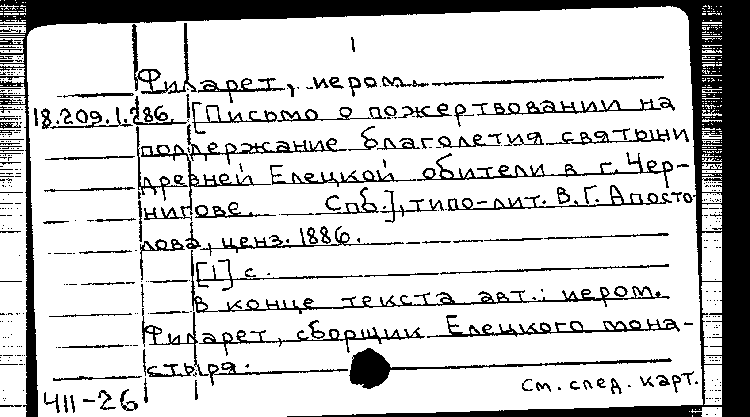 1
Филарет, иером.
18.209.1.286. [Письмо о пожертвовании на
поддержание благолетия святыни
древней Елецкой обители в г. Чер-
нигове. Спб.], типо-лит. В.Г. Апосто-
лова, ценз. 1886.
[1] с.
В конце текста авт.: иером.
Филарет, сборщик Елецкого мона-
стыря.
Ч11-26 См. след. карт.